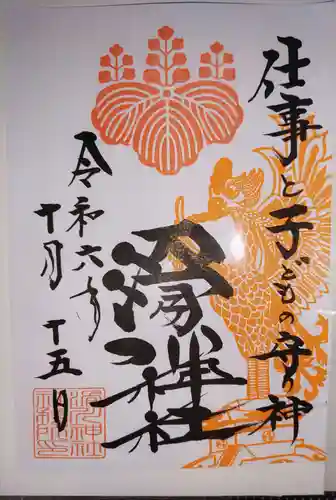 仕事と子どもの守り神
湯神社
令和六年
十月十五日